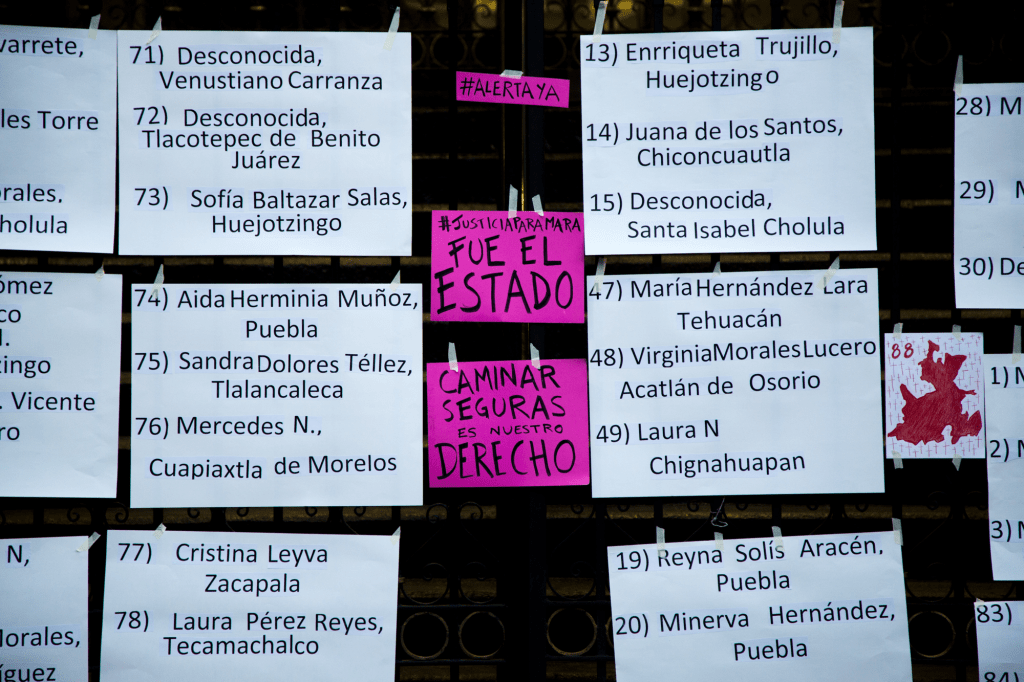 varrete,
les Torre
orales.
holula
71) Desconocida,
Venustiano Carranza
72) Desconocida,
Tlacotepec de Benito
Juárez
73) Sofía Baltazar Salas,
Huejotzingo
#ALERTA YA
#JUSTICIAPARAMARA
FUE EL
ESTADO
CAMINAR
SEGURAS
ES NUESTRO
DERECHO
13) Enrriqueta Trujillo,
Huejotzingo
14) Juana de los Santos,
Chiconcuautla
15) Desconocida,
Santa Isabel Cholula
28) M
29) M
30) De
ómez
co
l.
zingo
. Vicente
ro
74) Aida Herminia Muñoz,
Puebla
75) Sandra Dolores Téllez,
Tlalancaleca
76) Mercedes N.,
Cuapiaxtla de Morelos
47) María Hernández Lara
Tehuacán
48) Virginia Morales Lucero
Acatlán de Osorio
49) Laura N
Chignahuapan
88
1) M
2) M
3) M
N,
Morales,
íguez
77) Cristina Leyva
Zacapala
78) Laura Pérez Reyes,
Tecamachalco
19) Reyna Solís Aracén,
Puebla
20) Minerva Hernández,
Puebla
83)
84)